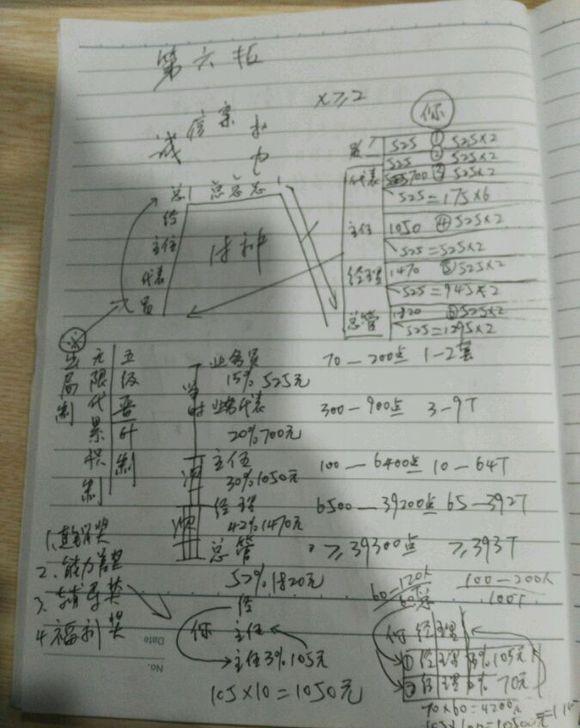 第六
x≥2
你
诚 信 宗
总 总总总
经
主任
代表
员
525 ① 525×2
525 ② 525×2
代表 700 ③ 525×2
525=175×6
主任 1050 ④ 525×2
525=525×2
经理 1470 ⑤ 525×2
525=945×2
总管 1820 ⑥ 525×2
525=1295×2
出局制
无限代累积制
五级晋升制
业务员 70—200点 1-2套
15% 525元
业务代表 300—900点 3-9T
20% 700元
主任 100—6400点 10—64T
30% 1050元
经理 6500—39200点 65—392T
42% 1470元
总管 ≥39300点 ≥393T
52% 1820元
1.直销奖
2.能力差奖
3.辅导奖
4.福利奖
经
你 主任
主任3% 105元
105×10=1050元
120人 100—200人
60 100T
你 经理
① 经理 3% 105元
② 70元
70×60=4200元
Date
No.